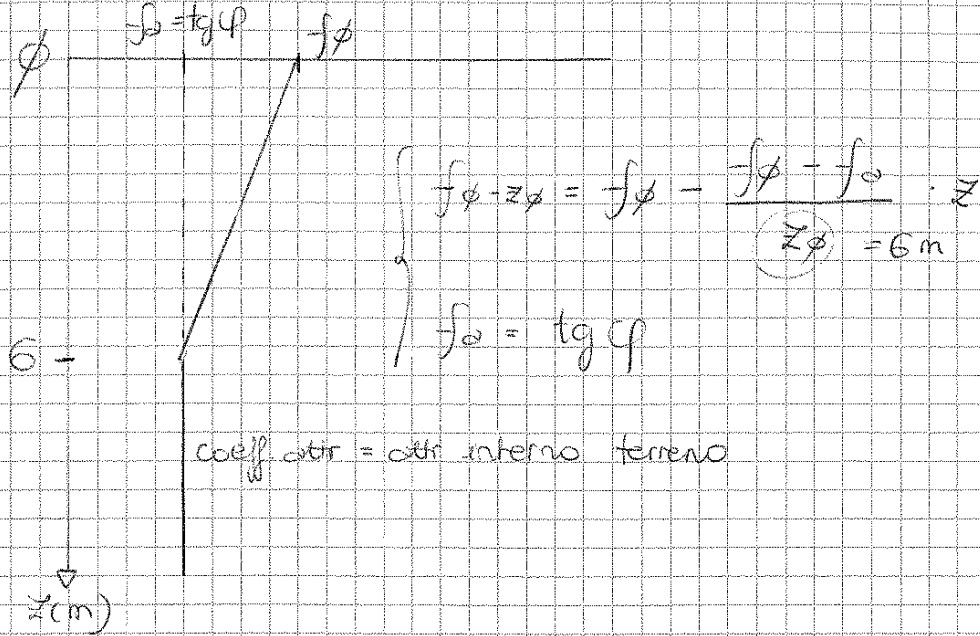 fa = tgφ
fø
ø
fø-zø = fø - (fø - fa) / zø · z
zø = 6 m
fa = tg φ
6
coeff attr = attr interno terreno
z(m)